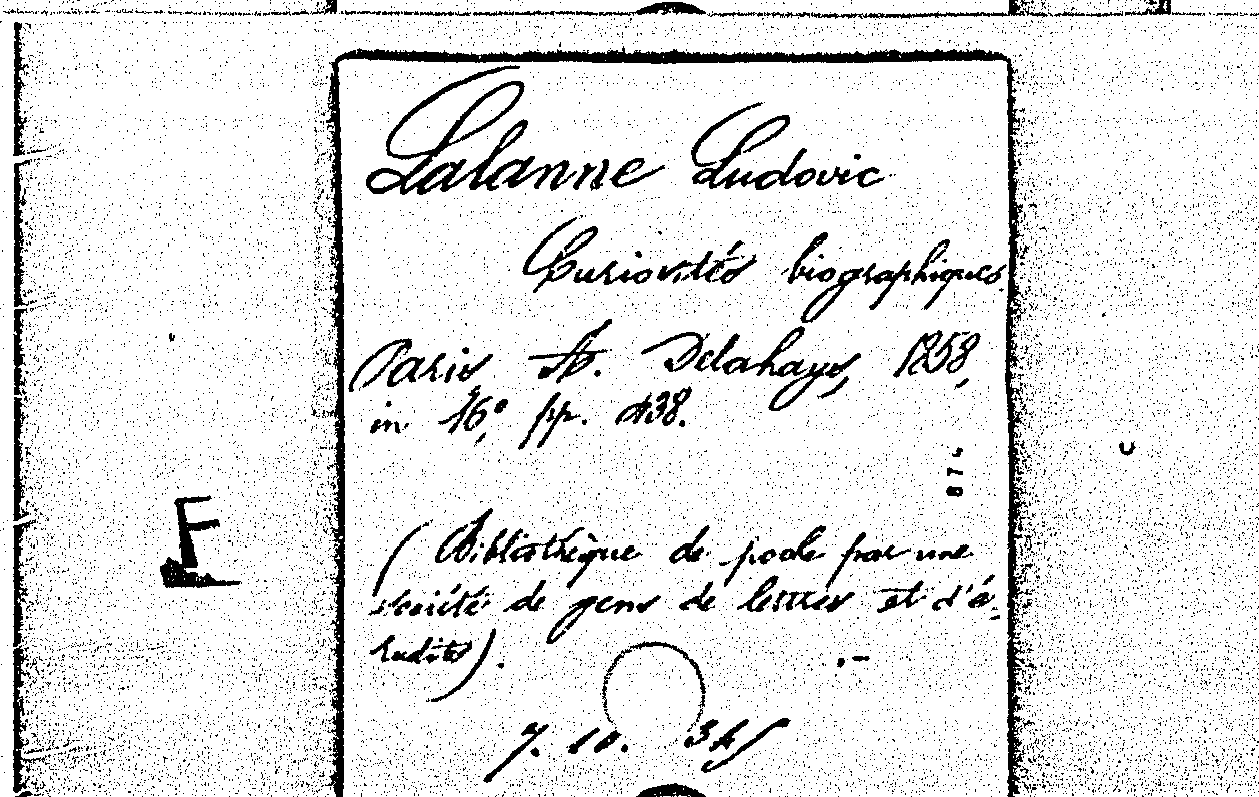 Lalanne Ludovic
Curiosités biographiques.
Paris A. Delahays, 1858,
in 16°, pp. 438.
874
F
(Bibliothèque de poche par une
société de gens de lettres et d'é-
rudits).
7. 10.